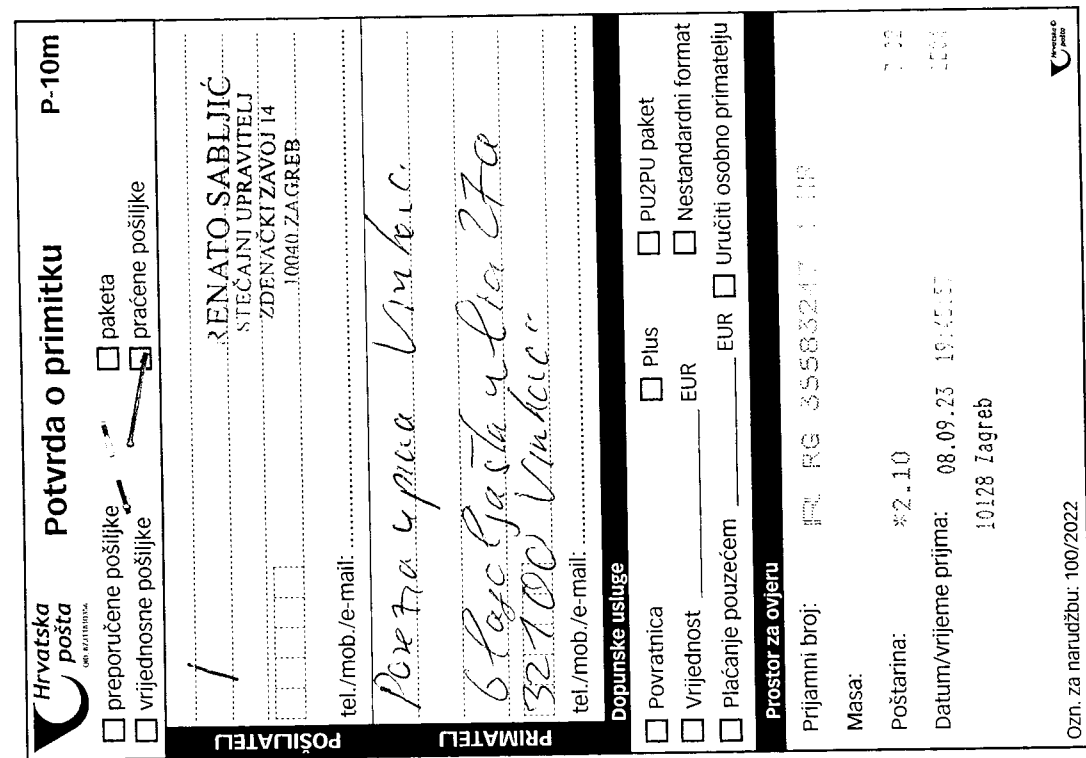 Hrvatska
pošta
Potvrda o primitku
P-10m
preporučene pošiljke
paketa
vrijednosne pošiljke
praćene pošiljke
POŠILJATELJ
RENATO SABLJIĆ
STEČAJNI UPRAVITELJ
ZDENAČKI ZAVOJ 14
10040 ZAGREB
tel./mob./e-mail:
PRIMATELJ
Porezna uprava
32100 Vinkovci
tel./mob./e-mail:
Dopunske usluge
Povratnica
Plus
PU2PU paket
Vrijednost EUR
Nestandardni format
Plaćanje pouzećem EUR
Uručiti osobno primatelju
Prostor za ovjeru
Prijamni broj: RG
Masa:
Poštarina: *2.10
Datum/vrijeme prijma: 08.09.23
10128 Zagreb
Ozn. za narudžbu: 100/2022
Hrvatska
pošta